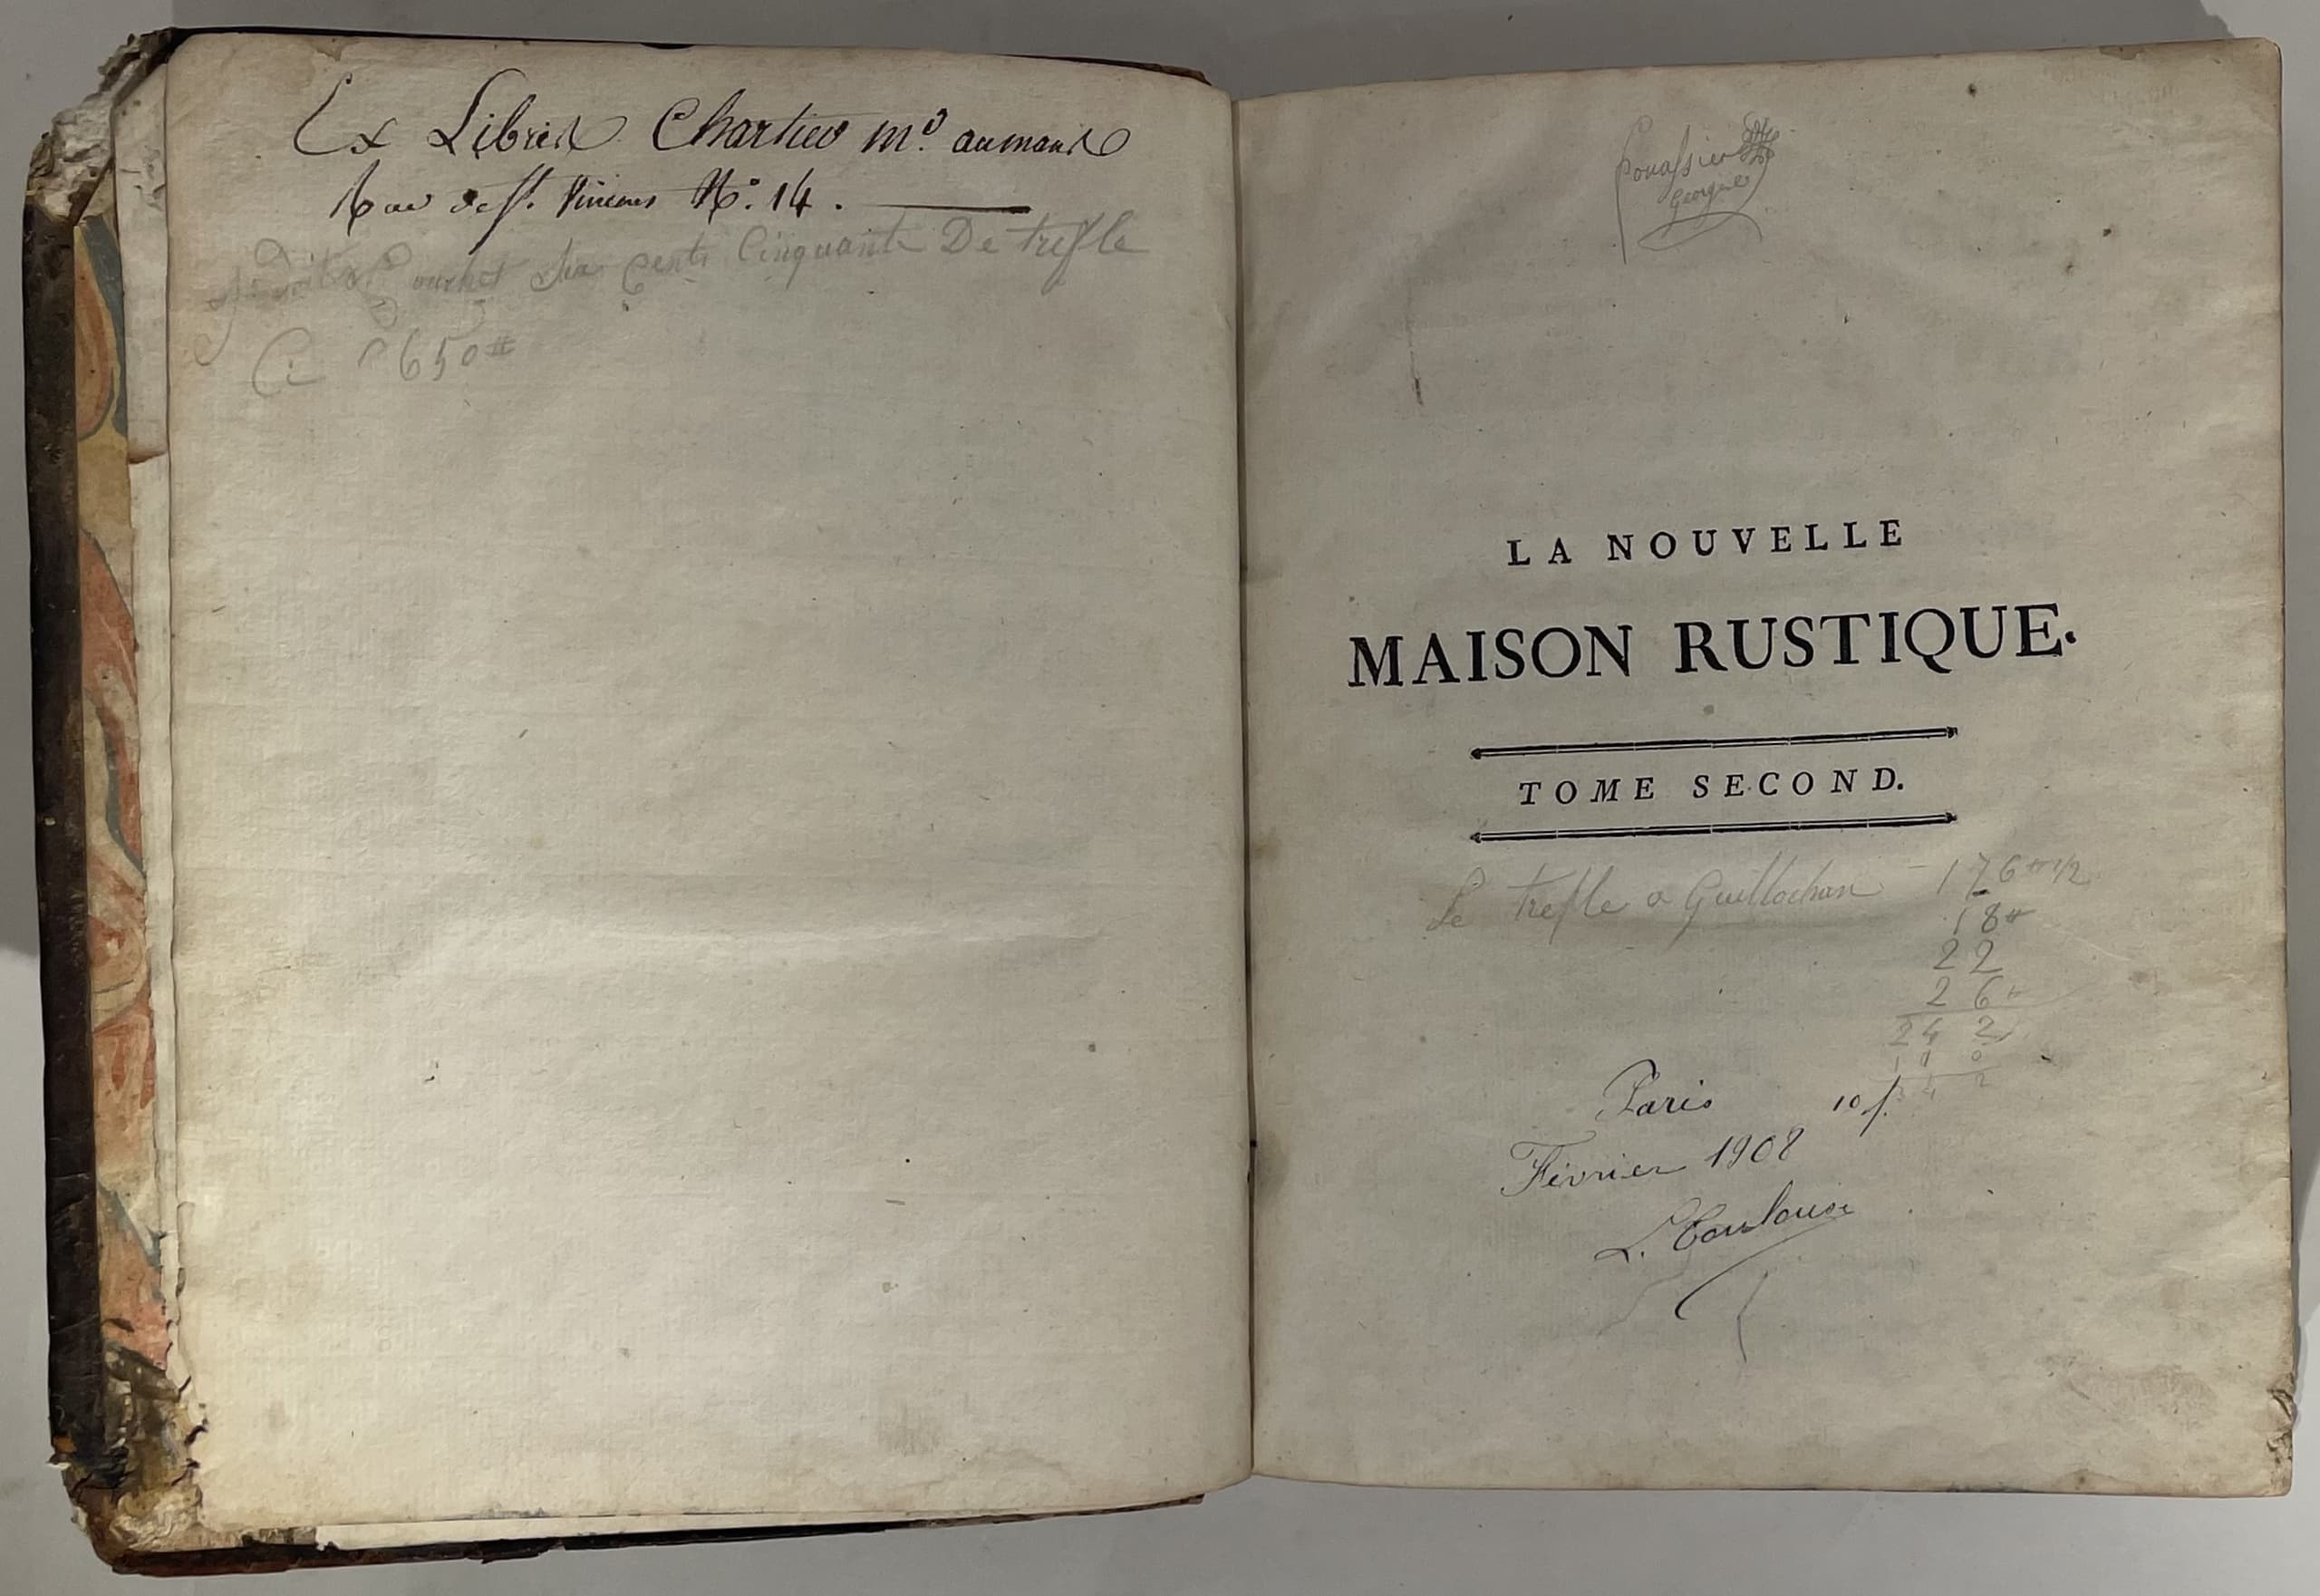 Ex Libris Chartier m.d aumans
Rue de St. Vincens N.o 14.
six Cents Cinquante De treffle
Ci 650 #
Georges
LA NOUVELLE
MAISON RUSTIQUE.
TOME SECOND.
Le treffle a Guillochon - 176 # 1/2
18 #
22
26 #
242
100
342
Paris 10 f.
Février 1908
L. Toulouse